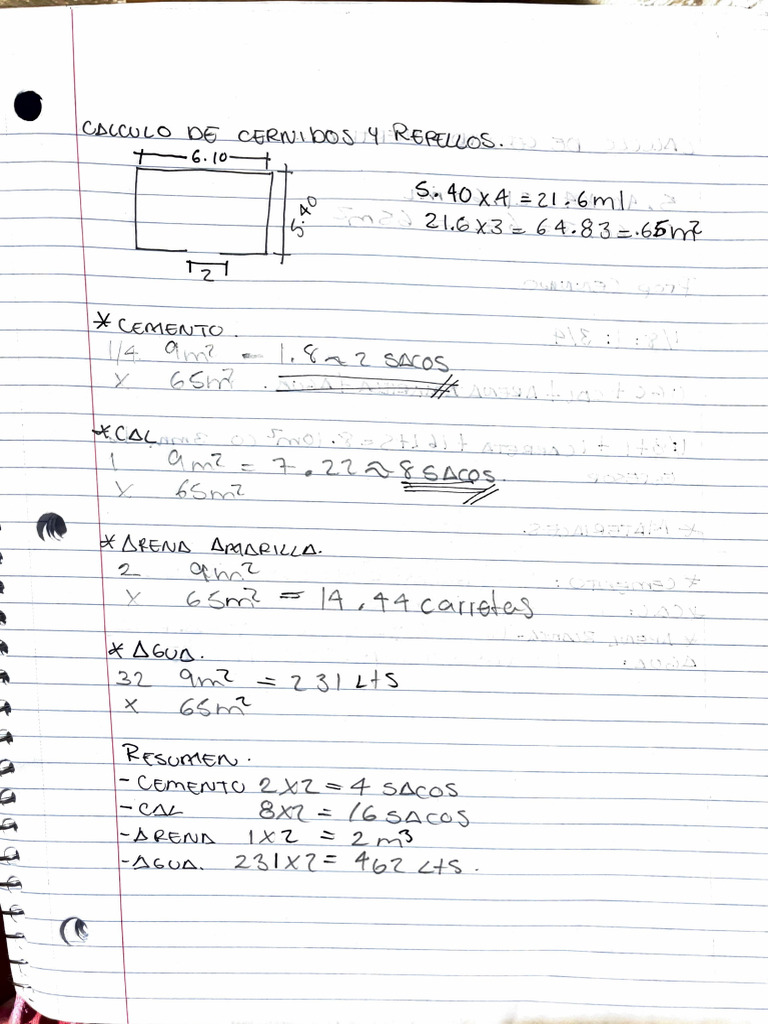 CALCULO DE CERNIDOS Y REPELLOS.
6.10
5.40
2
5.40 x 4 = 21.6 ml
21.6 x 3 = 64.83 = .65m²
* CEMENTO.
1/4 9m² = 1.8 ≈ 2 SACOS
X 65m².
* CAL
1 9m² = 7.22 ≈ 8 SACOS.
X 65m²
* ARENA AMARILLA.
2 9m²
X 65m² = 14.44 carretas
* AGUA.
32 9m² = 231 LtS
X 65m²
RESUMEN.
- CEMENTO 2X2 = 4 SACOS
- CAL 8X2 = 16 SACOS
- ARENA 1X2 = 2 m³
- AGUA. 231X2 = 462 LtS.